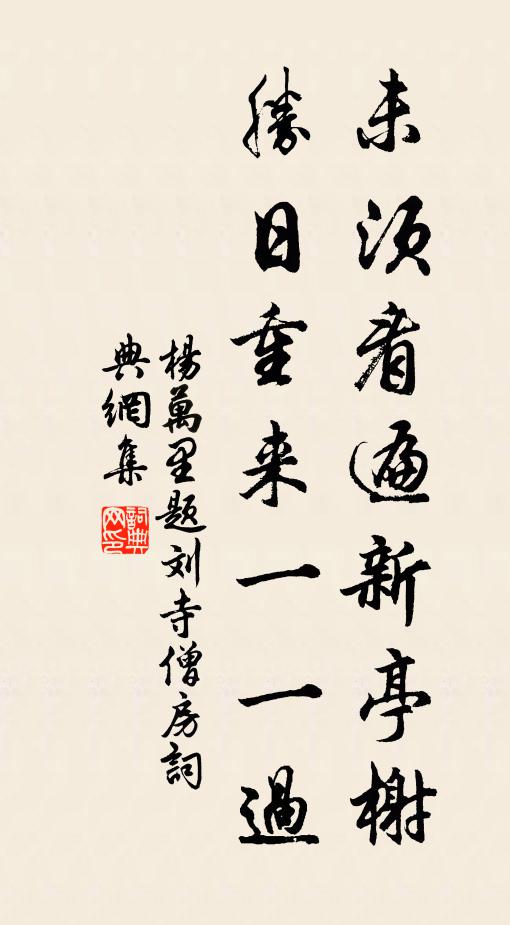 未須看遍新亭榭
勝日重来一一過
楊萬里題刘寺僧房詞
典網集
詞典
网印